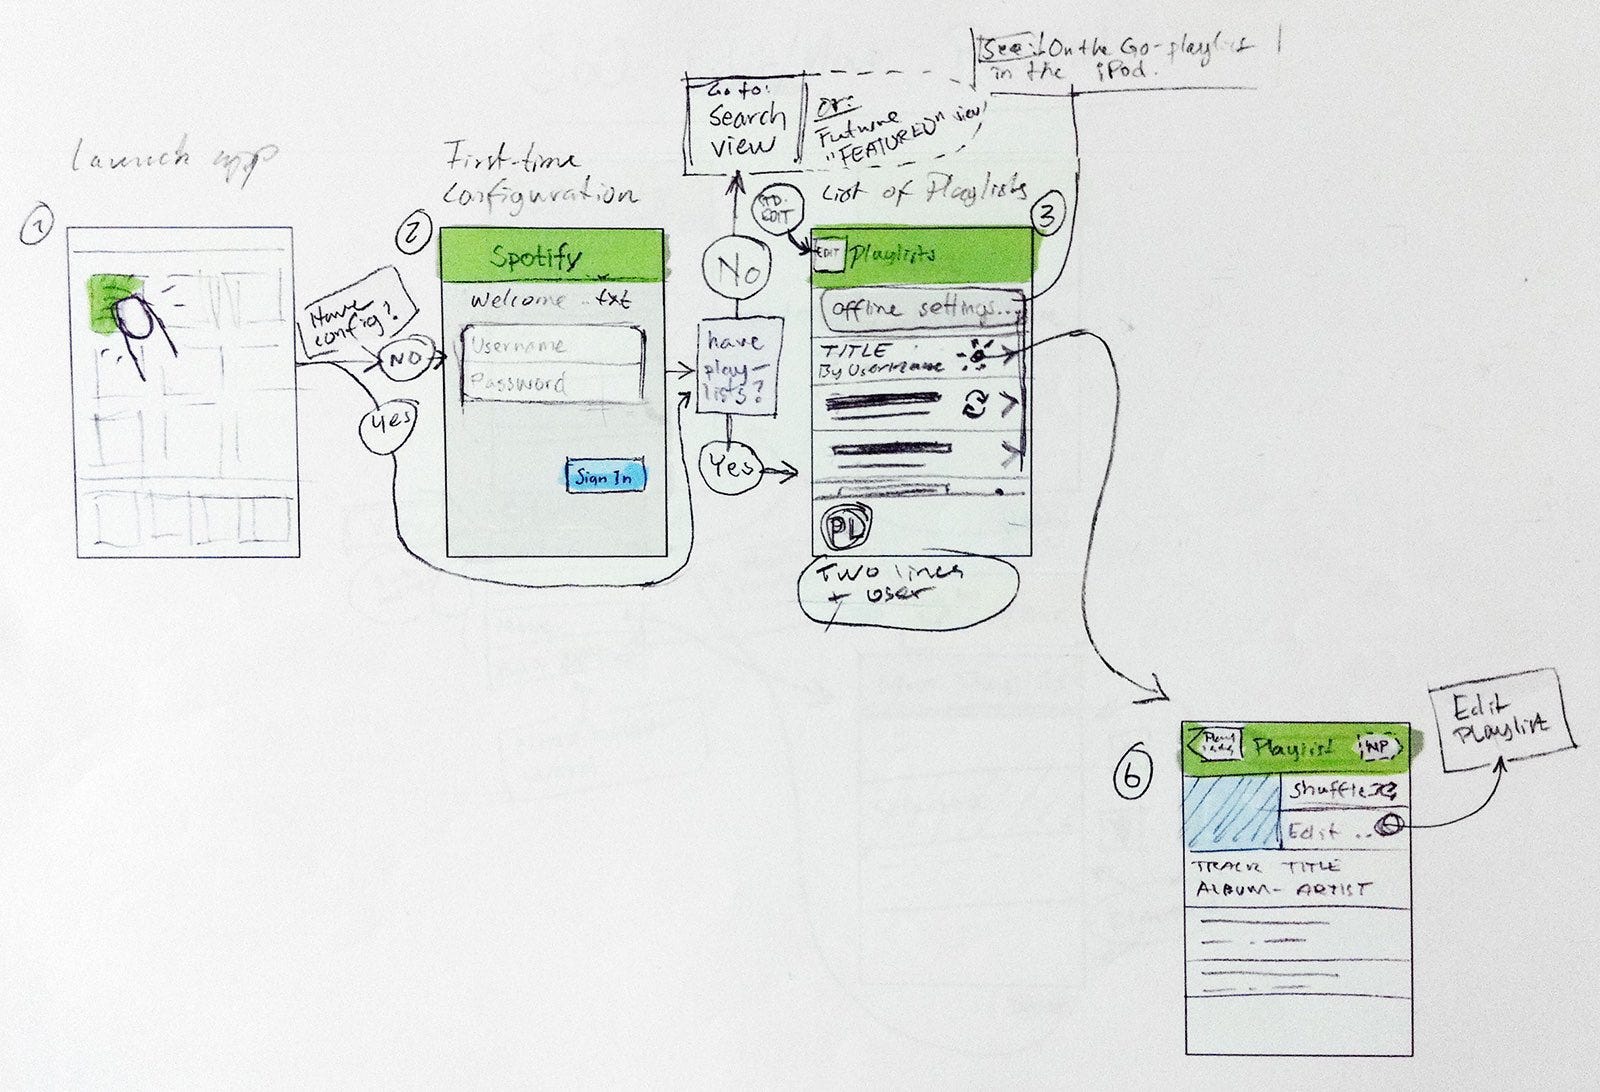 See: On the Go-playlist
in the iPod.
Go to:
Search
view
or:
Future
"FEATURED" view
Launch app
First-time
configuration
List of Playlists
1
2
3
STD.
EDIT
Spotify
EDIT
Playlists
Welcome ..txt
Username
Password
Sign In
Have
config?
NO
Yes
No
have
play-
lists?
Yes
offline settings...
TITLE
By Username
PL
Two lines
+ user
6
Playlist
NP
shuffle
Edit ..
TRACK TITLE
ALBUM - ARTIST
Edit
Playlist